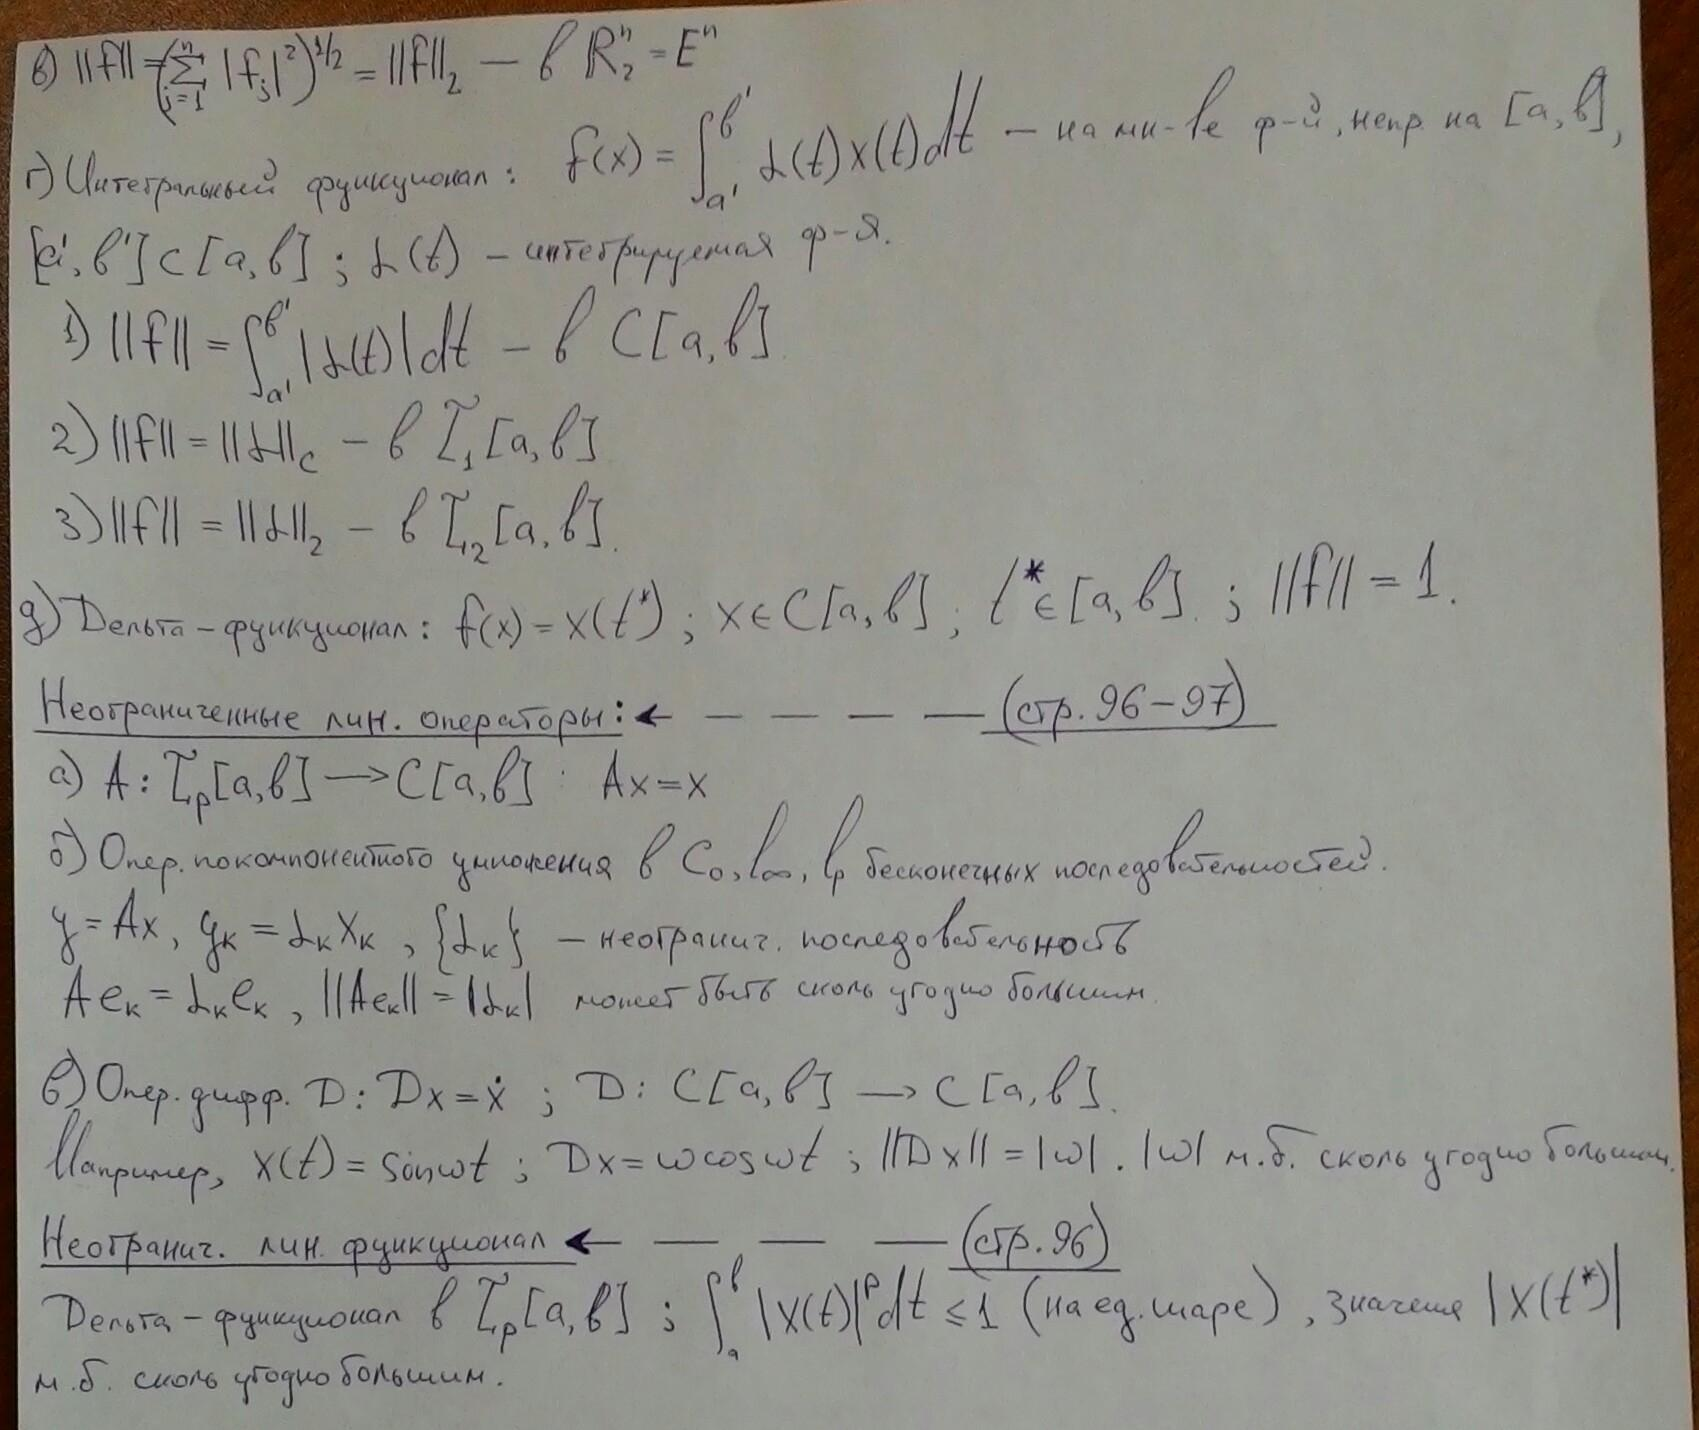 в) ||f|| = (∑_{j=1}^{n} |f_j|²)^{1/2} = ||f||₂ — в ℝ₂ⁿ = Eⁿ
г) Интегральный функционал: f(x) = ∫_{a'}^{b'} α(t)x(t)dt — на мн-ве ф-й, непр. на [a, b],
[a', b'] ⊂ [a, b] ; α(t) – интегрируемая ф-я.
1) ||f|| = ∫_{a'}^{b'} |α(t)|dt – в C[a, b]
2) ||f|| = ||α||_C – в L̃₁[a, b]
3) ||f|| = ||α||₂ – в L̃₂[a, b].
д) Дельта-функционал: f(x) = x(t*) ; x ∈ C[a, b] ; t* ∈ [a, b] ; ||f|| = 1.
Неограниченные лин. операторы: ← — — — — (стр. 96–97)
а) A : L̃_p[a, b] → C[a, b] : Ax = x
б) Опер. покомпонентного умножения в C₀, l_∞, l_p бесконечных последовательностей.
y = Ax, y_k = α_k x_k , {α_k} – неогранич. последовательность
Ae_k = α_k e_k , ||Ae_k|| = |α_k| может быть сколь угодно большим.
в) Опер. дифф. D : Dx = ẋ ; D : C[a, b] → C[a, b].
Например, x(t) = sin ωt ; Dx = ω cos ωt ; ||Dx|| = |ω| . |ω| м.б. сколь угодно большим.
Неогранич. лин. функционал ← — — — — (стр. 96)
Дельта-функционал в L̃_p[a, b] ; ∫_a^b |x(t)|^p dt ≤ 1 (на ед. шаре) , значения |x(t*)|
м.б. сколь угодно большим.